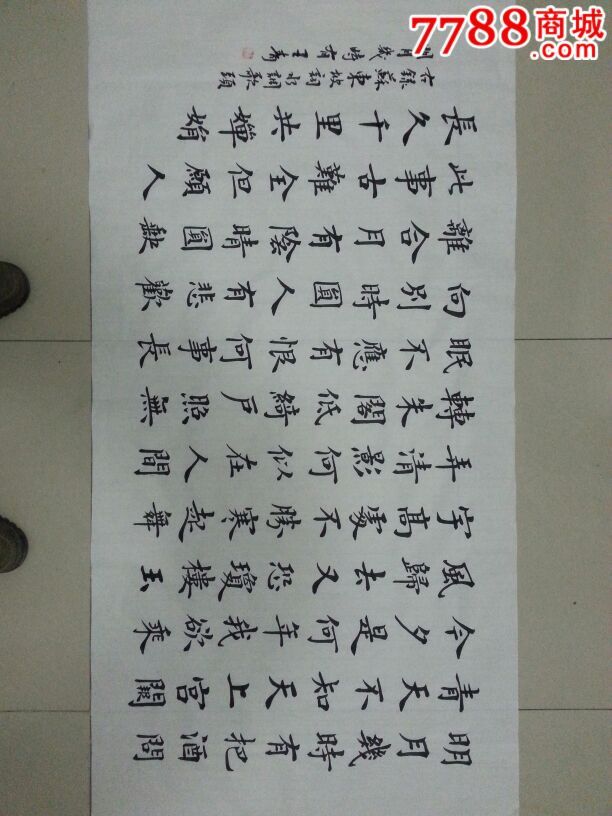 明月幾時有把酒問
青天不知天上宮闕
今夕是何年我欲乘
風歸去又恐瓊樓玉
宇高處不勝寒起舞
弄清影何似在人間
轉朱閣低綺戶照無
眠不應有恨何事長
向別時圓人有悲歡
離合月有陰晴圓缺
此事古難全但願人
長久千里共嬋娟
右錄蘇東坡詞水調歌頭
明月幾時有 王
7788商城